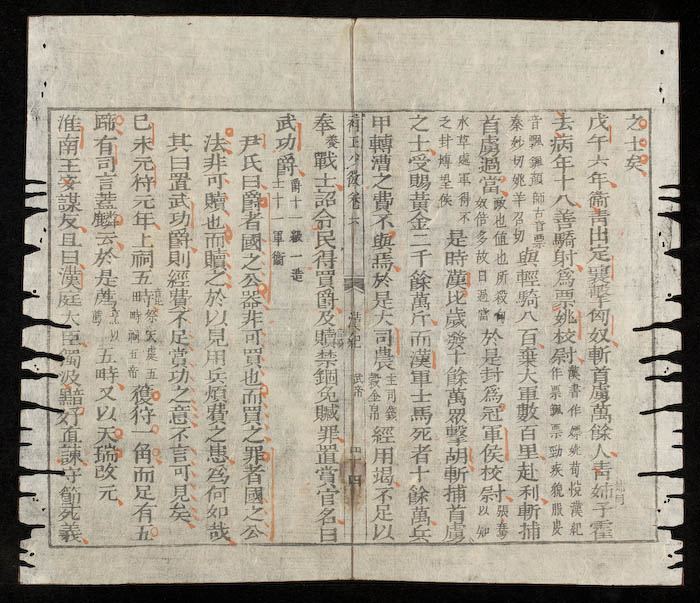 之士矣
戊午六年衞青出定襄擊匈奴斬首虜萬餘人青姉子霍
去病年十八善騎射爲票姚校尉漢書作票姚荀悅漢紀作票鷂票勁疾貌服虔
音飄顏師古音票妙切姚羊召切與輕騎八百棄大軍數百里赴利斬捕
首虜過當敵也値也所殺奴倍多故曰過當於是封爲冠軍侯校尉張騫以知
水草處軍得不乏封博望侯是時漢比歲發十餘萬眾擊胡斬捕首虜
之士受賜黃金二十餘萬斤而漢軍士馬死者十餘萬兵
甲轉漕之費不與焉於是大司農主司錢穀金帛經用竭不足以
少微卷六 漢紀 武帝 四
奉養戰士詔令民得買爵及贖禁錮免贓罪置賞官名曰
武功爵爵十一級一造士十一軍衞
尹氏曰爵者國之公器非可買也而買之罪者國之公
法非可贖也而贖之於以見用兵煩費之患爲何如哉
其曰置武功爵則經費不足賞功之意不言可見矣
己未元狩元年上祠五畤祭天處五畤祠五帝獲狩一角而足有五
蹄有司言蓋麟云於是薦五畤又以天瑞改元
淮南王安謀反且曰漢庭大臣獨汲黯好直諫守節死義